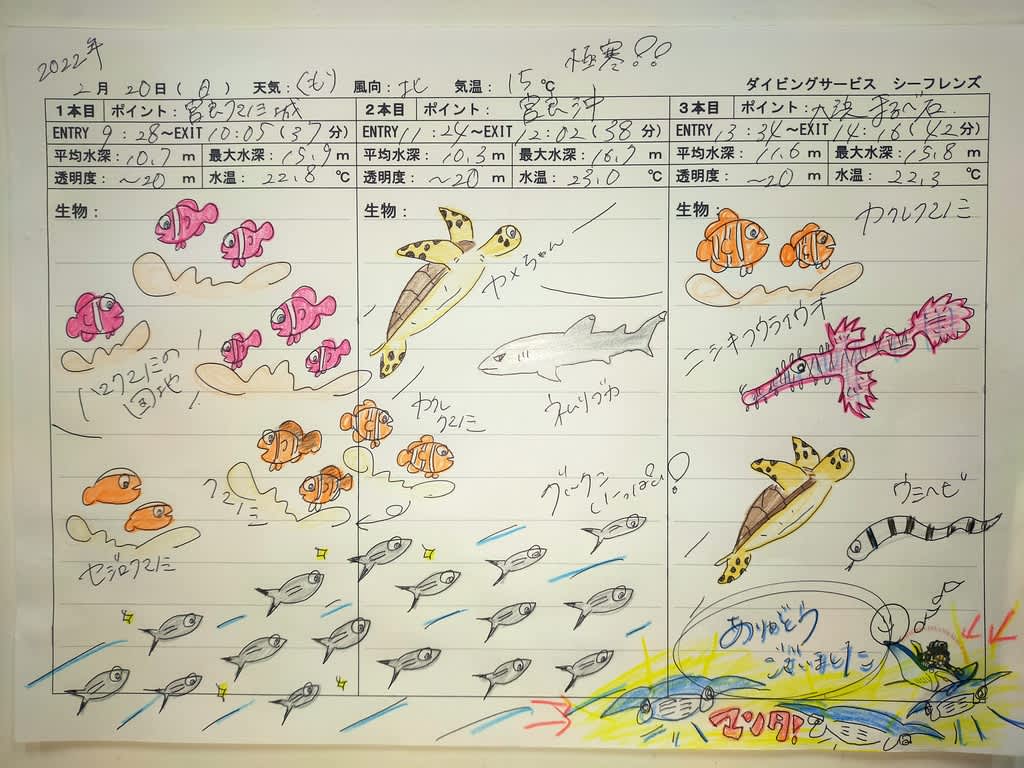 2022年
極寒??
2月 20日(日) 天気:くもり 風向:北 気温:15℃ ダイビングサービス シーフレンズ
1本目 ポイント:宮良クマノミ城
ENTRY 9:28～EXIT 10:05(37分)
平均水深:10.7m 最大水深:15.9m
透明度:～20m 水温:22.8℃
生物:
ハマクマノミの
団地
クマノミ
カクレ
クマノミ
セジロクマノミ
2本目 ポイント:宮良沖
ENTRY 11:24～EXIT 12:02(38分)
平均水深:10.3m 最大水深:16.7m
透明度:～20m 水温:23.0℃
生物:
カメちゃん
ネムリブカ
グルクン
いっぱい!
3本目 ポイント:大浜
ENTRY 13:34～EXIT 14:16(42分)
平均水深:11.6m 最大水深:15.8m
透明度:～20m 水温:22.3℃
生物:
カクレクマノミ
ニシキフウライウオ
ウミヘビ
ありがとう
ございました
マンタ!